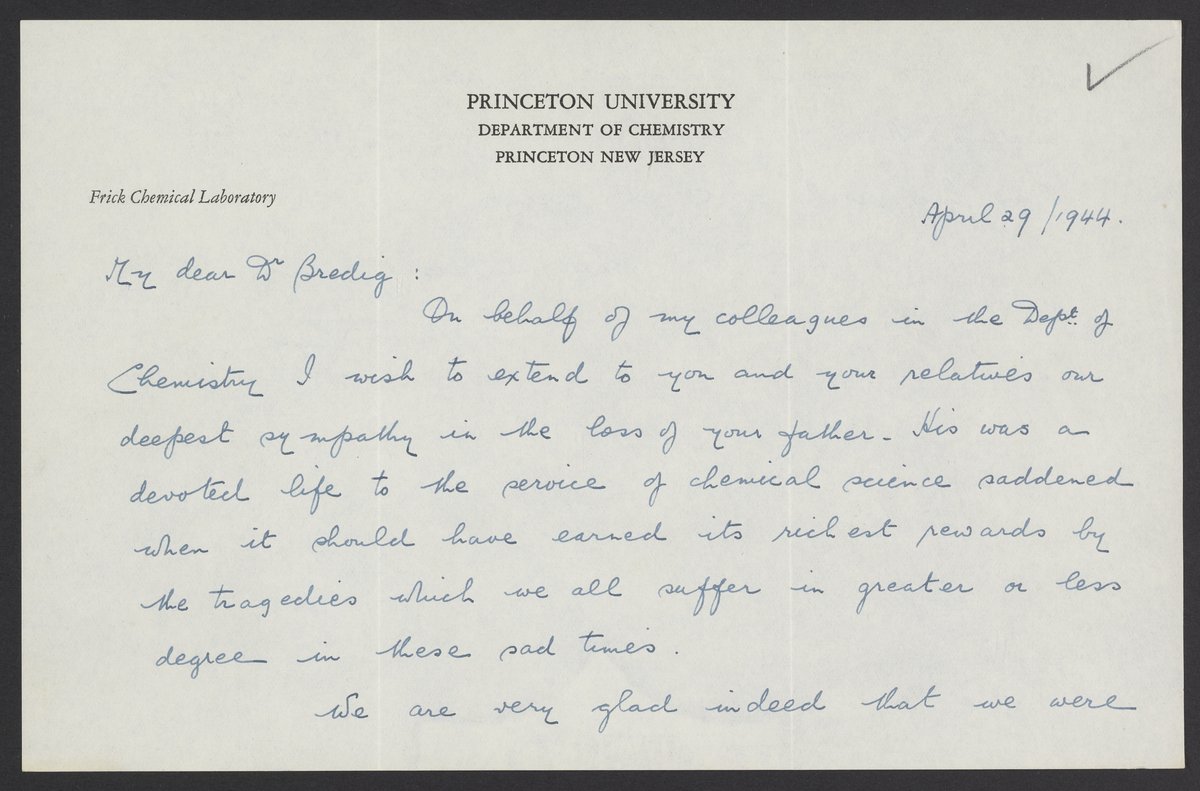 PRINCETON UNIVERSITY
DEPARTMENT OF CHEMISTRY
PRINCETON NEW JERSEY
Frick Chemical Laboratory
April 29/1944.
My dear Dr Bredig :
On behalf of my colleagues in the Dept. of
Chemistry I wish to extend to you and your relatives our
deepest sympathy in the loss of your father. His was a
devoted life to the service of chemical science saddened
when it should have earned its richest rewards by
the tragedies which we all suffer in greater or less
degree in these sad times.
We are very glad indeed that we were